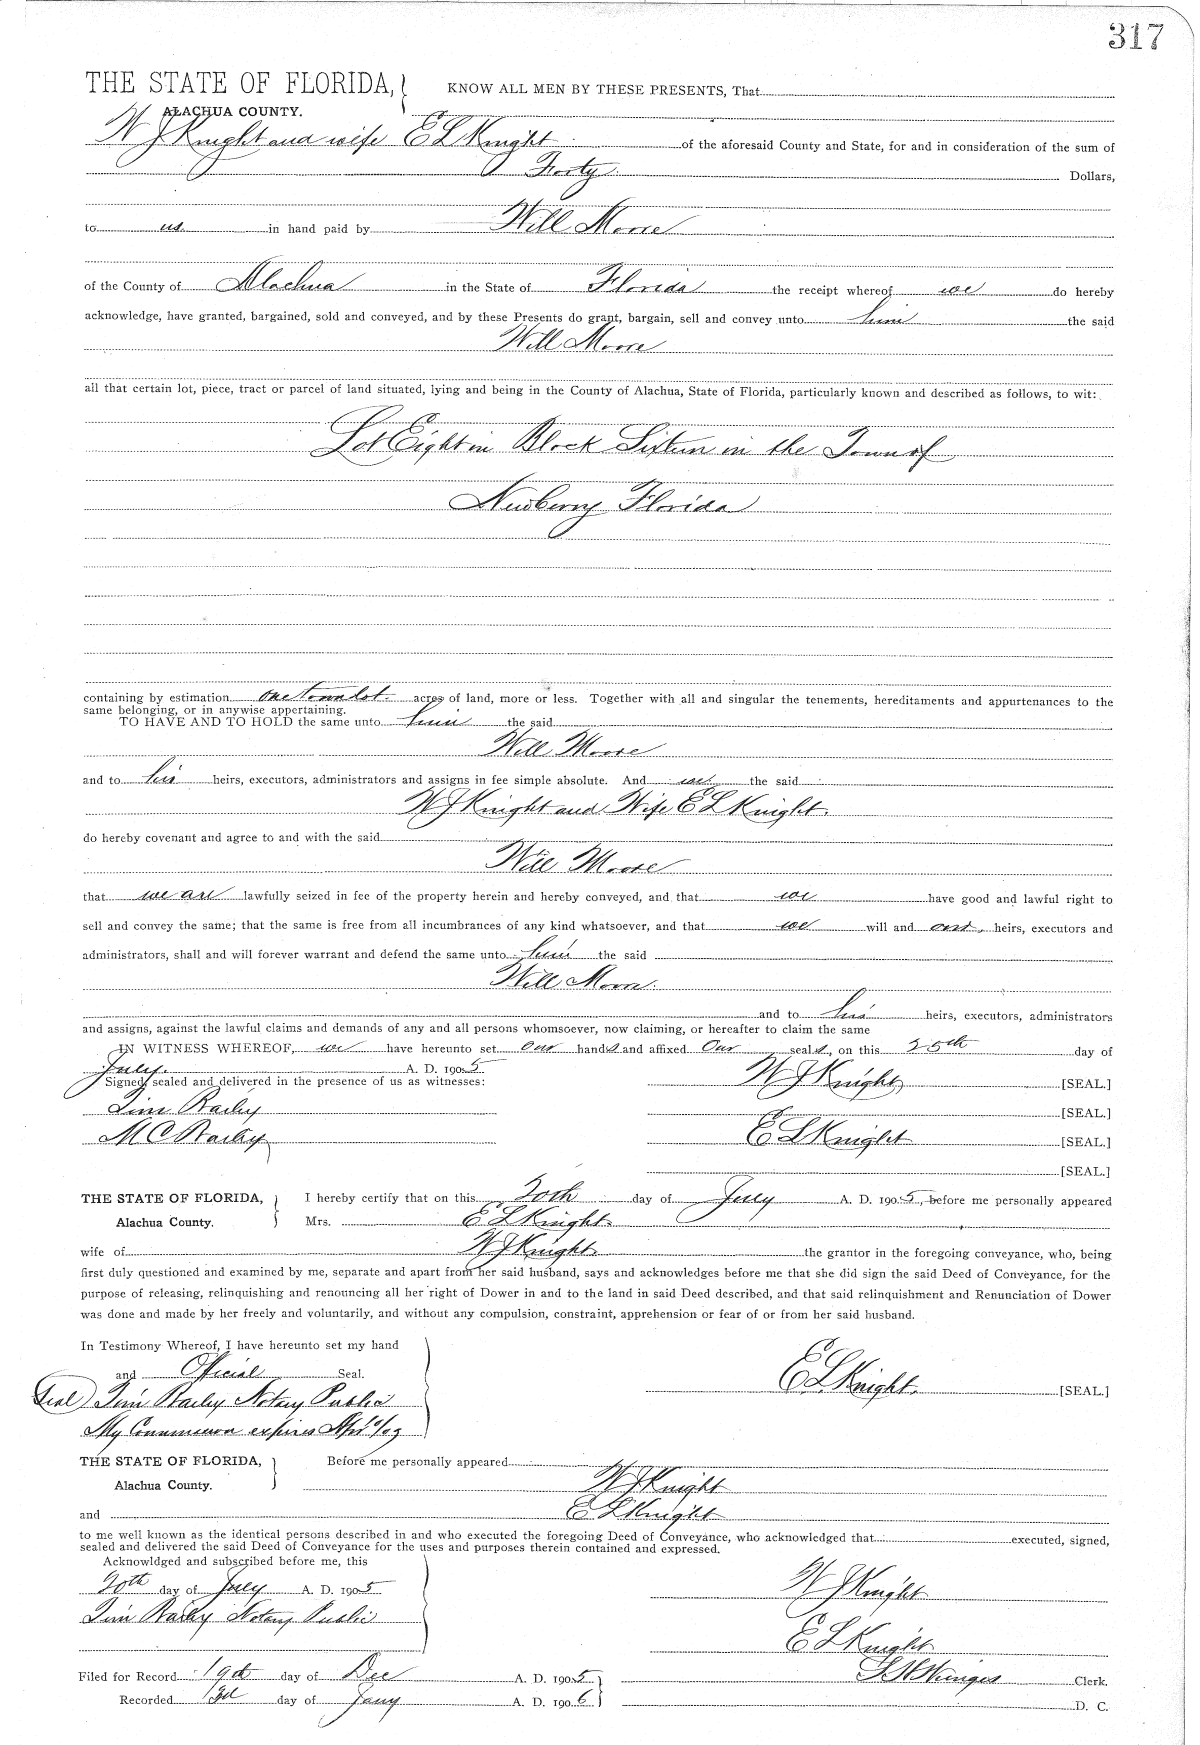 317
THE STATE OF FLORIDA, KNOW ALL MEN BY THESE PRESENTS, That
ALACHUA COUNTY.
W J Knight and wife E L Knight of the aforesaid County and State, for and in consideration of the sum of
Forty Dollars,
to us in hand paid by Will Moore
of the County of Alachua in the State of Florida the receipt whereof we do hereby
acknowledge, have granted, bargained, sold and conveyed, and by these Presents do grant, bargain, sell and convey unto him the said
Will Moore
all that certain lot, piece, tract or parcel of land situated, lying and being in the County of Alachua, State of Florida, particularly known and described as follows, to wit:
Lot Eight in Block Sixteen in the Town of
Newberry Florida
containing by estimation one town lot acres of land, more or less. Together with all and singular the tenements, hereditaments and appurtenances to the
same belonging, or in anywise appertaining.
TO HAVE AND TO HOLD the same unto him the said
Will Moore
and to his heirs, executors, administrators and assigns in fee simple absolute. And we the said
W J Knight and Wife E L Knight
do hereby covenant and agree to and with the said
Will Moore
that we are lawfully seized in fee of the property herein and hereby conveyed, and that we have good and lawful right to
sell and convey the same; that the same is free from all incumbrances of any kind whatsoever, and that we will and our heirs, executors and
administrators, shall and will forever warrant and defend the same unto him the said
Will Moore
and to his heirs, executors, administrators
and assigns, against the lawful claims and demands of any and all persons whomsoever, now claiming, or hereafter to claim the same
IN WITNESS WHEREOF, we have hereunto set our hands and affixed our seals, on this 25th day of
July A. D. 1905 W J Knight [SEAL.]
Signed, sealed and delivered in the presence of us as witnesses:
Tim Raiby [SEAL.]
M C Raiby E L Knight [SEAL.]
[SEAL.]
THE STATE OF FLORIDA, I hereby certify that on this 20th day of July A. D. 1905, before me personally appeared
Alachua County. Mrs. E L Knight
wife of W J Knight the grantor in the foregoing conveyance, who, being
first duly questioned and examined by me, separate and apart from her said husband, says and acknowledges before me that she did sign the said Deed of Conveyance, for the
purpose of releasing, relinquishing and renouncing all her right of Dower in and to the land in said Deed described, and that said relinquishment and Renunciation of Dower
was done and made by her freely and voluntarily, and without any compulsion, constraint, apprehension or fear of or from her said husband.
In Testimony Whereof, I have hereunto set my hand
and Official Seal. E L Knight [SEAL.]
Seal Tim Raiby Notary Public
My Commission expires
THE STATE OF FLORIDA, Before me personally appeared
Alachua County. W J Knight
and E L Knight
to me well known as the identical persons described in and who executed the foregoing Deed of Conveyance, who acknowledged that executed, signed,
sealed and delivered the said Deed of Conveyance for the uses and purposes therein contained and expressed.
Acknowldged and subscribed before me, this
20th day of July A. D. 1905 W J Knight
Tim Raiby Notary Public
E L Knight
Filed for Record 19th day of Dec A. D. 1905 Clerk.
Recorded 3d day of Jany A. D. 1906 D. C.